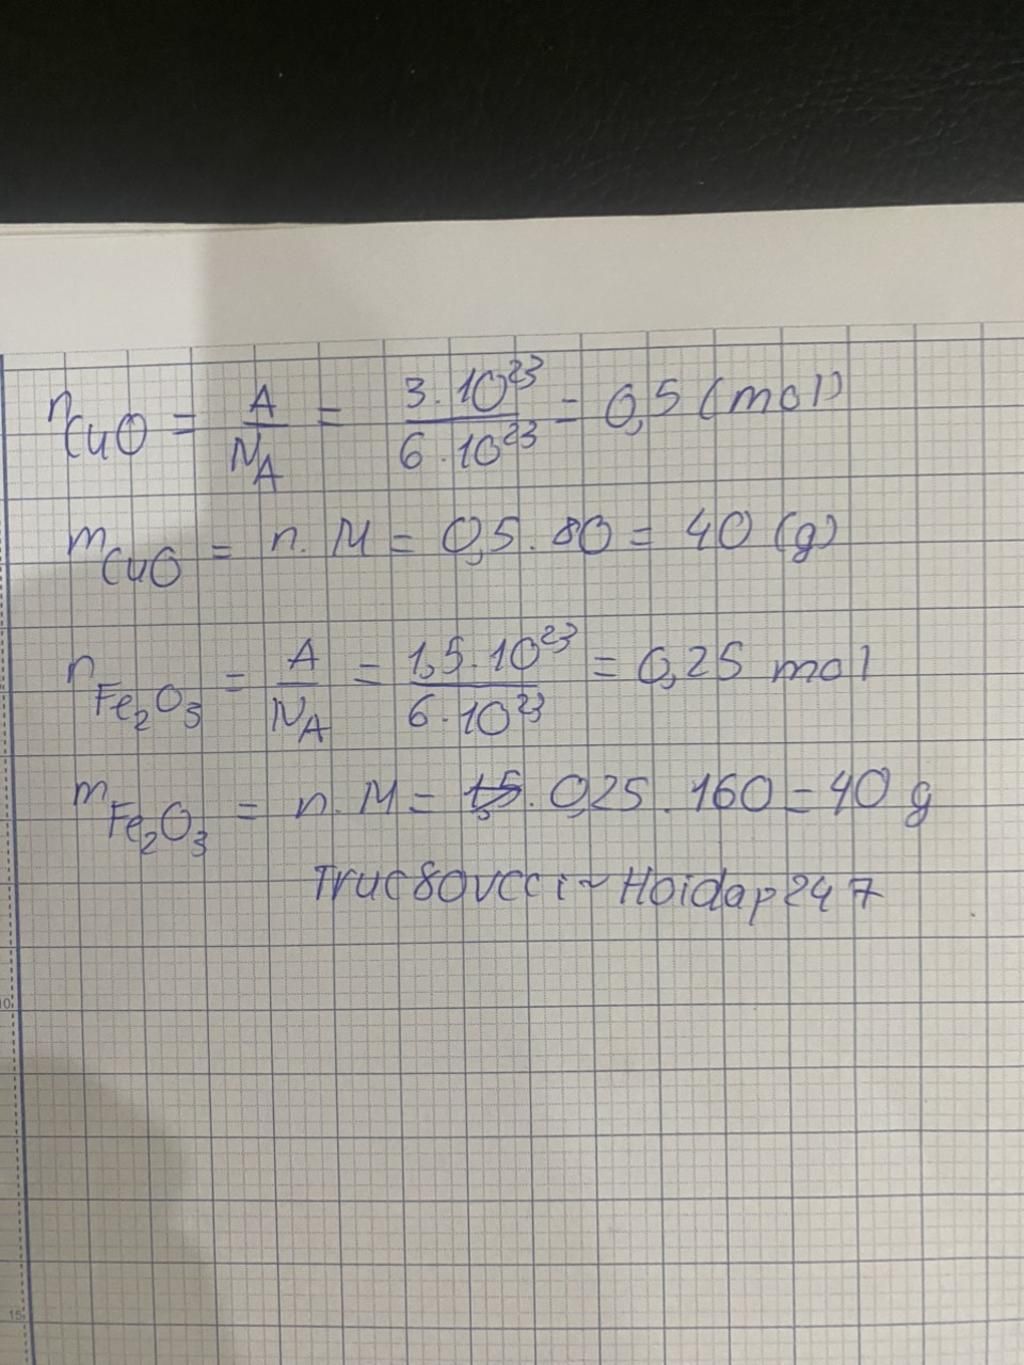 nCuO = A/NA = 3.10²³/6.10²³ = 0,5 (mol)
mCuO = n.M = 0,5.80 = 40 (g)
nFe₂O₃ = A/NA = 1,5.10²³/6.10²³ = 0,25 mol
mFe₂O₃ = n.M = 1,5. 0,25.160 = 40 g
Truc80vcci ~ Hoidap247
10
15